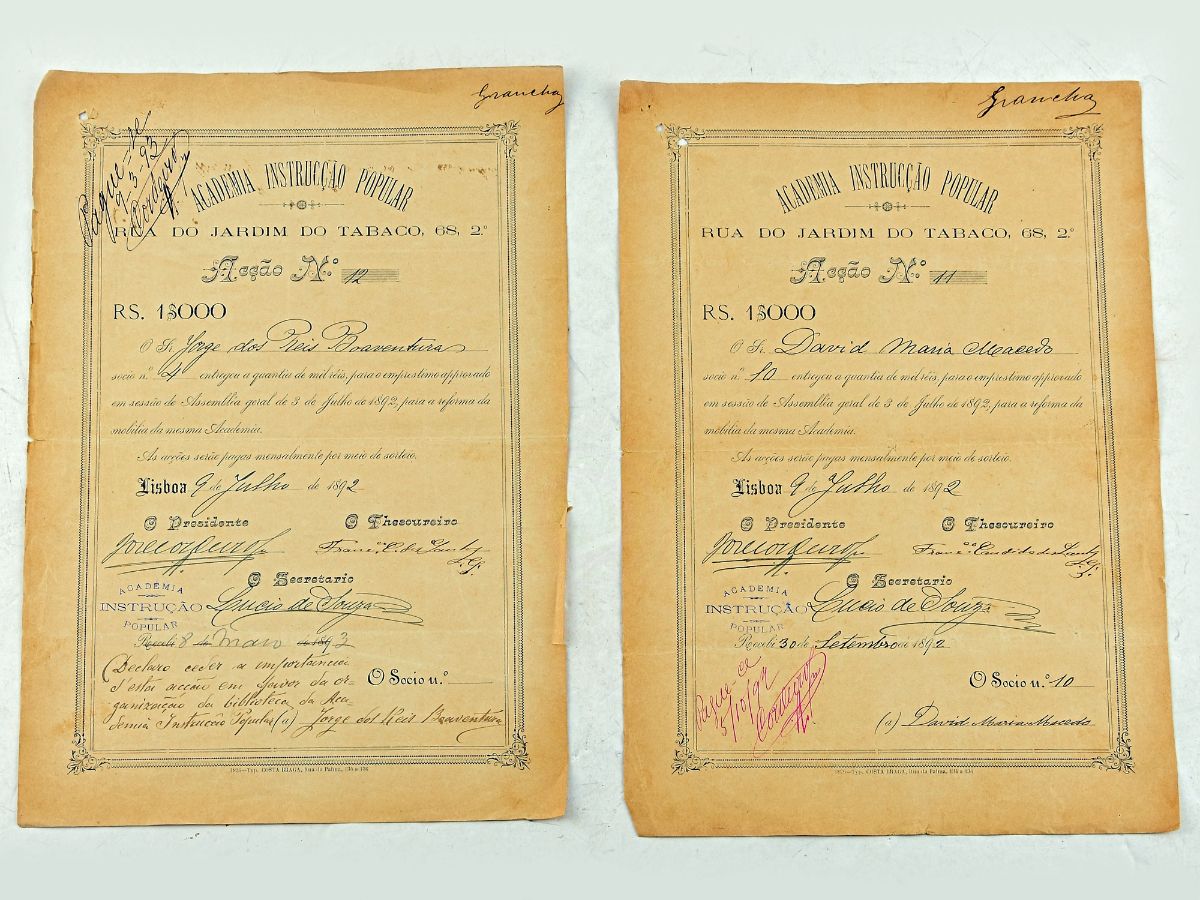 Grancha
Pague-se
9-3-93
Cordeiro
ACADEMIA INSTRUCÇÃO POPULAR
RUA DO JARDIM DO TABACO, 68, 2.º
Acção N.º 12
RS. 1$000
O Sr. Jorge dos Reis Boaventura
socio n.º 4 entregou a quantia de mil réis, para o emprestimo approvado
em sessão de Assembléa geral de 3 de Julho de 1892, para a reforma da
mobilia da mesma Academia.
As acções serão pagas mensalmente por meio de sorteio.
Lisboa 9 de Julho de 1892
O Presidente O Thesoureiro
O Secretario
Lucio de Souza
ACADEMIA
INSTRUÇÃO
POPULAR
Recebi 8 de Maio de 1893
Declaro ceder a importancia
d'esta acção em favor da or-
ganização da biblioteca da Aca-
demia Instrucção Popular (a) Jorge dos Reis Boaventura
O Socio n.º
1825—Typ. COSTA BRAGA, Rua da Palma, 134 a 136
Grancha
ACADEMIA INSTRUCÇÃO POPULAR
RUA DO JARDIM DO TABACO, 68, 2.º
Acção N.º 11
RS. 1$000
O Sr. David Maria Macedo
socio n.º 10 entregou a quantia de mil réis, para o emprestimo approvado
em sessão de Assembléa geral de 3 de Julho de 1892, para a reforma da
mobilia da mesma Academia.
As acções serão pagas mensalmente por meio de sorteio.
Lisboa 9 de Julho de 1892
O Presidente O Thesoureiro
Franc.co Candido dos Santos
O Secretario
Lucio de Souza
ACADEMIA
INSTRUÇÃO
POPULAR
Recebi 30 de Setembro de 1892
Pague-se
15/10/92
Cordeiro
O Socio n.º 10
(a) David Maria Macedo
1825—Typ. COSTA BRAGA, Rua da Palma, 134 a 136